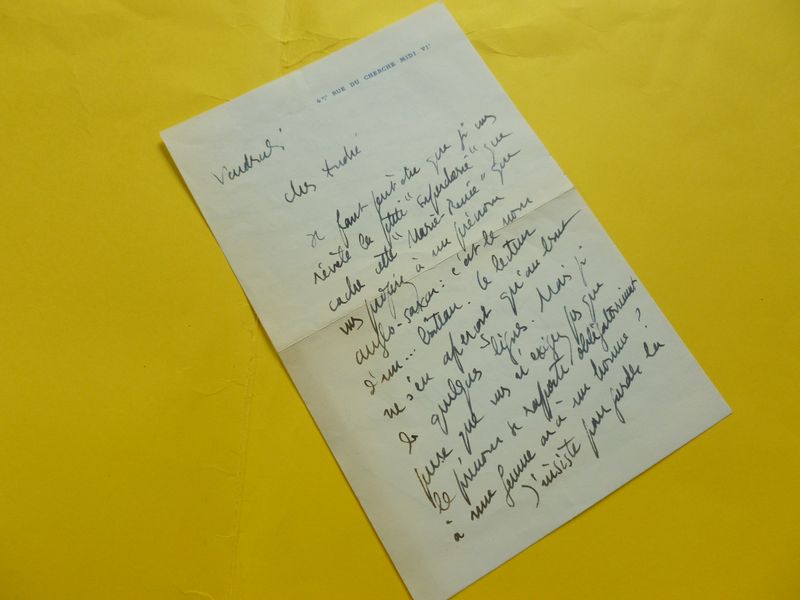 4bis RUE DU CHERCHE MIDI VIe
Vendredi
Cher André
Il faut peut-être que je vous
révèle la petite "supercherie" que
cache cette "Marie-Renée" que
vous préférez à un prénom
anglo-saxon : c'est le nom
d'un... bateau. Le lecteur
ne s'en aperçoit qu'au bout
de quelques lignes. Mais je
pense que vous n'exigez pas que
le prénom se rapporte obligatoirement
à une femme ou à un homme ?
J'insiste pour garder la